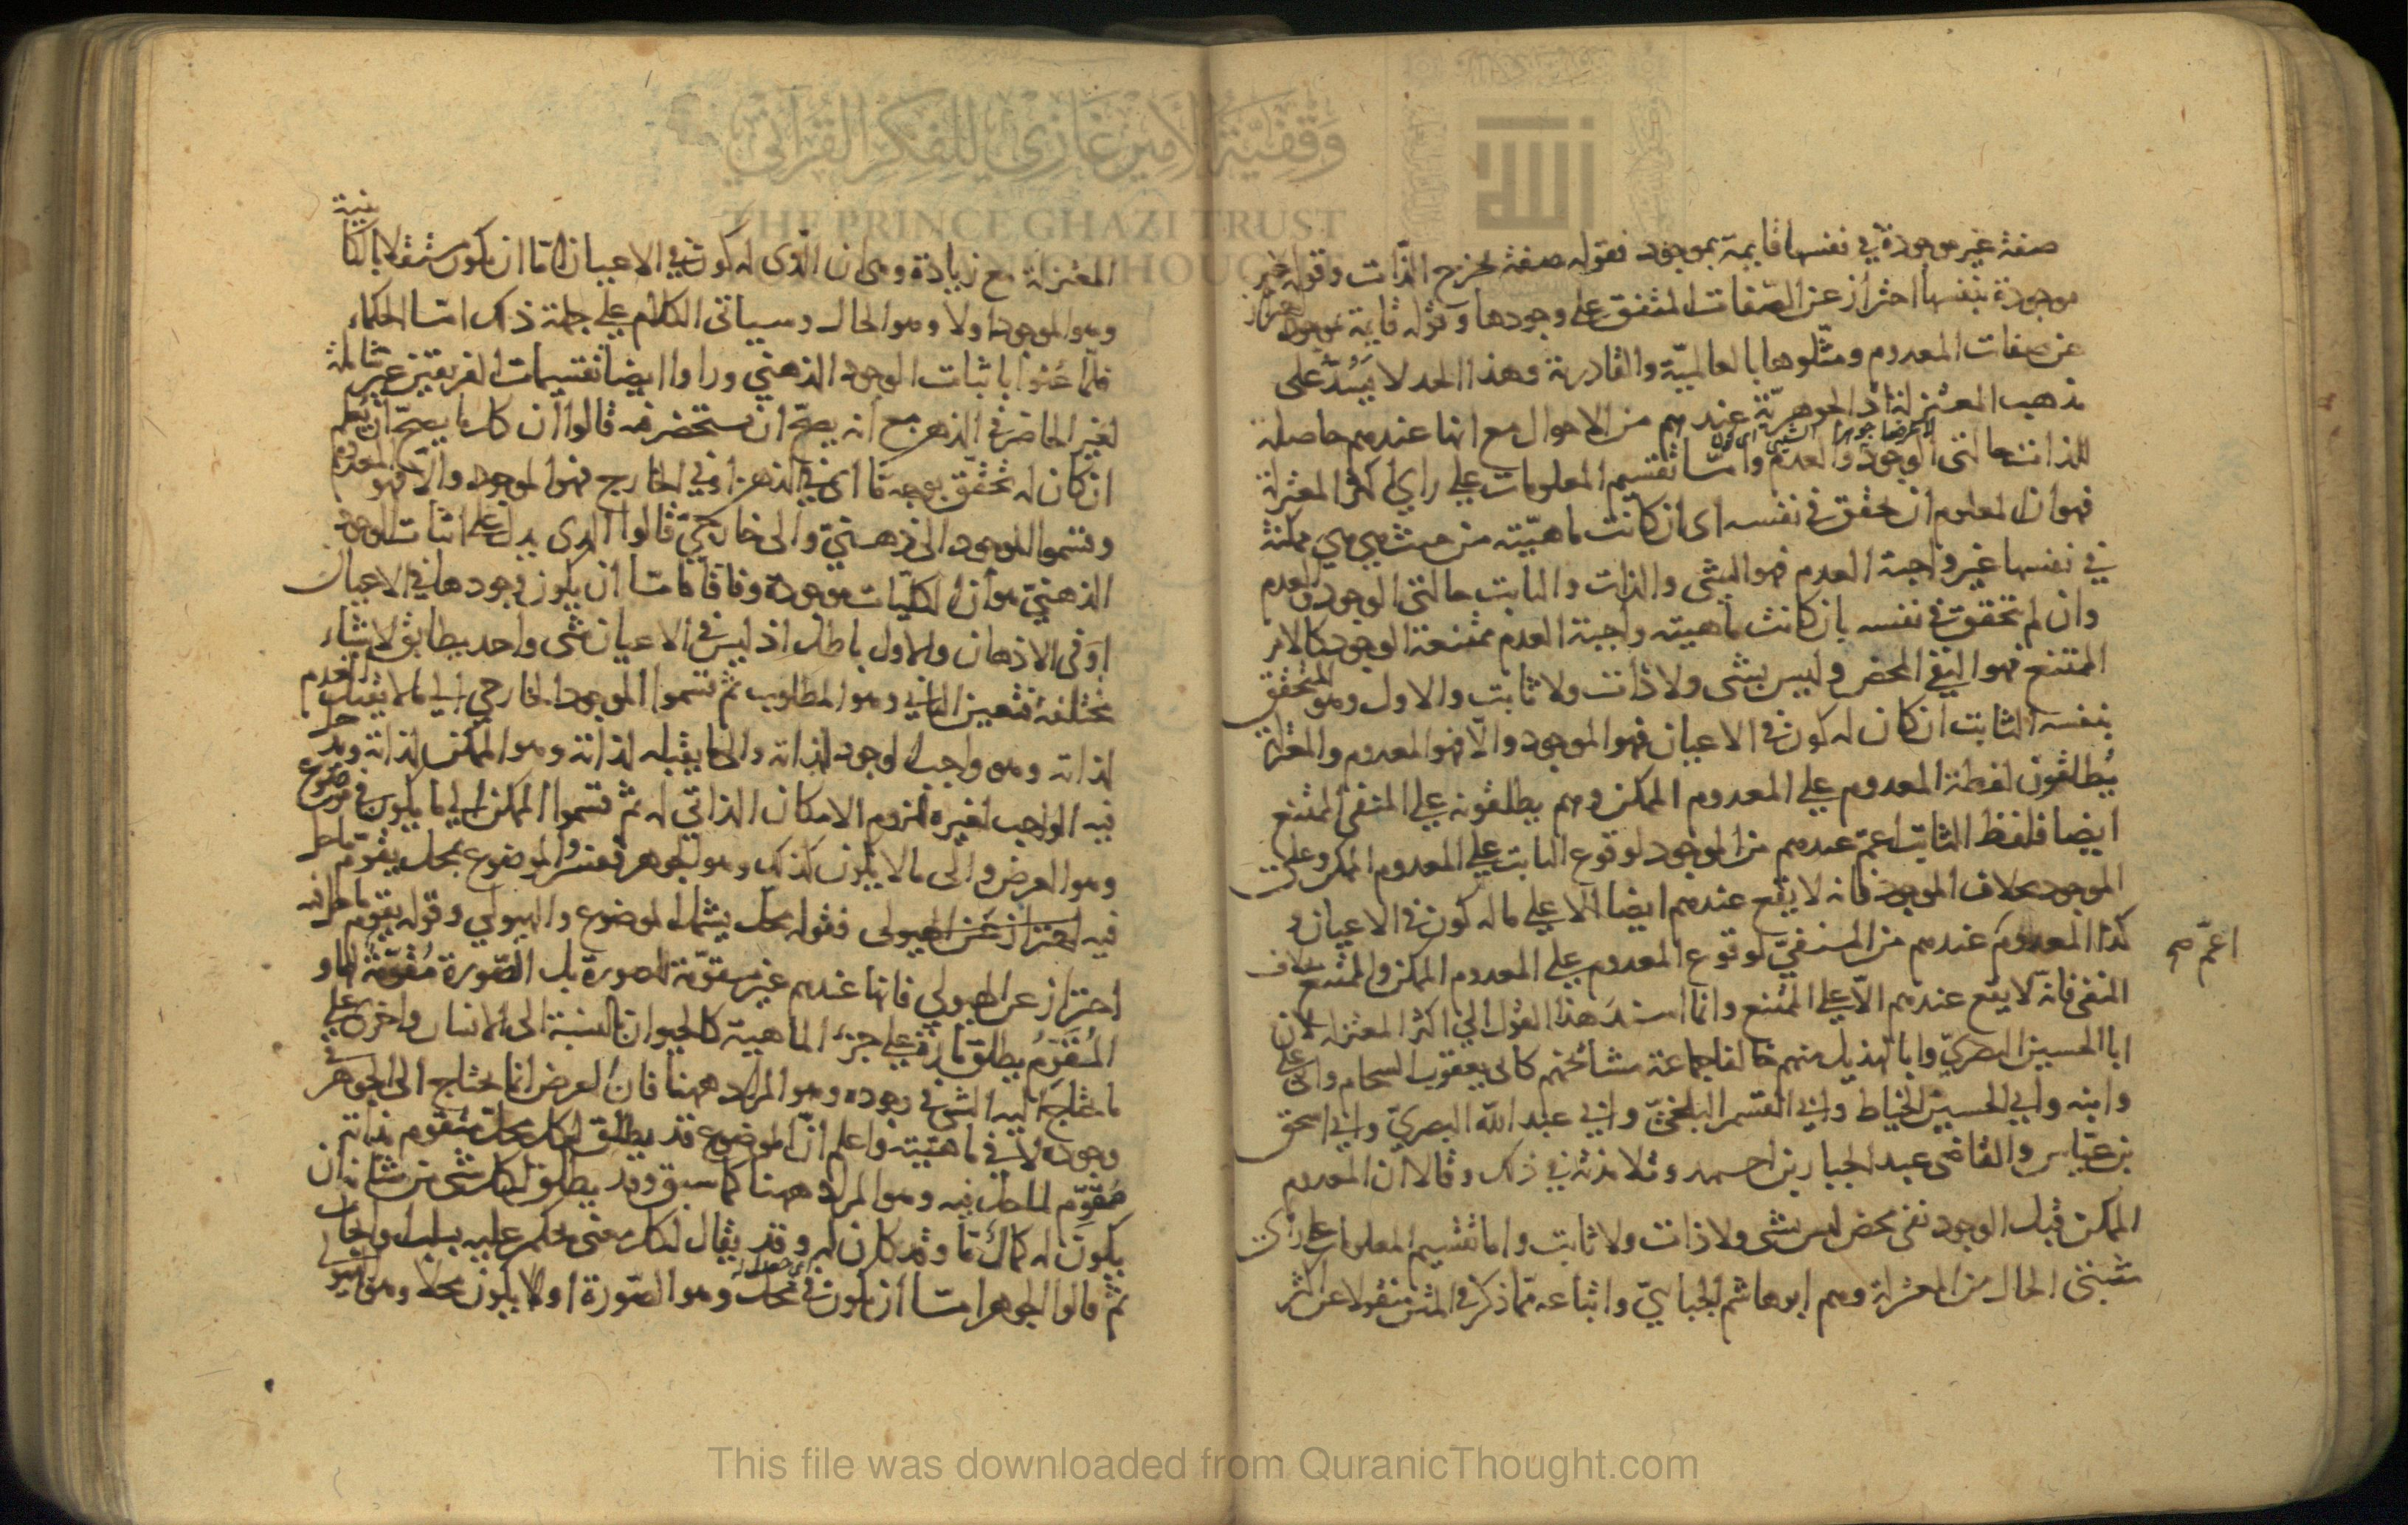 صفة غير موجودة في نفسها قايمة بموجود فقوله صفة يخرج الذات وقوله غير
موجودة بنفسها احتراز عن الصفات المتفق على وجودها وقوله قايمة بموجود احتراز
عن صفات المعدوم ومثلوها بالعالمية والقادرية وهذا الحد لا يستدّ على
مذهب المعتزلة اذ الجوهرية عندهم من الاحوال مع انها عندهم حاصلة
للذات حالتي الوجود والعدم وامّا تقسيم المعلومات على راي اكثر المعتزلة
فهو ان المعلوم ان تحقق في نفسه اى ان كانت ماهيّته من حيث هي هي ممكنة
في نفسها غير واجبة العدم فهو الشى والذات والثابت حالتى الوجود والعدم
وان لم تحقق في نفسه بان كانت ماهيته واجبة العدم ممتنعة الوجود كالامر
الممتنع فهو النفى المحض وليس بشى ولا ذات ولا ثابت والاول وهو المتحقق
بنفسه الثابت ان كان له كون فى الاعيان فهو الموجود والّا فهو المعدوم والمعتزلة
يُطلقون لفظة المعدوم على المعدوم الممكن وهم يطلقونه على المنفى الممتنع
ايضا فلفظ الثابت اعمّ عندهم من الموجود لوقوع الثابت على المعدوم الممكن وعلى
الموجود بخلاف الموجود فانه لا يقع عندهم ايضا الّا على ما له كون فى الاعيان و
كذا المعدوم عندهم من المنفيّ لوقوع المعدوم على المعدوم الممكن والممتنع بخلاف
اعمّ صح
المنفى فانّه لا يقع عندهم الّا على الممتنع وانما اسند هذا القول الى اكثر المعتزلة لان
ابا الحسين البصريّ وابا الهذيل منهم خالفا جماعة مشائخهم كابى يعقوب الشحام وابى على
وابنه وابي الحسين الخياط وابي القسم البلخيّ وابي عبد الله البصريّ وابي اسحق
بن عيّاس والقاضى عبد الجبار بن احمد وتلامذته في ذلك وقالا ان المعدوم
الممكن قبل الوجود نفى محض ليس بشى ولا ذات ولا ثابت واما تقسيم المعلومات على راى
مثبتى الحال من المعتزلة وهم ابو هاشم الجبائيّ واتباعه فما ذكر في المتن منقولا عن اكثر
المعتزلة مع زيادة وهى ان الّذى له كون في الاعيان امّا ان يكون مستقلا بالكائنية
وهو الموجود او لا وهو الحال وسياتى الكلام على جملة ذلك امّا الحكماء
فلمّا عُنوا باثبات الوجود الذهني وراوا ايضا تقسيمات الفريقين غير شاملة
لغير الحاضر فى الذهن مع انه يصحّ ان يستحضر فيه قالوا ان كل ما يصحّ ان يُعلم
ان كان له تحقّق بوجه مّا اى في الذهن او في الخارج فهو الموجود والّا فهو المعدوم
وقسّموا الموجود الى ذهنيّ والى خارجيّ قالوا الذى يدل على اثبات الوجود
الذهنيّ هو انّ الكليّات موجودة وفاقا فامّا ان يكون وجودها في الاعيان
او فى الاذهان والاول باطل اذ ليس فى الاعيان شى واحد يطابق لاشياء
مختلفة فتعين الثاني وهو المطلوب ثم قسّموا الموجود الخارجي الى ما لا يقبل العدم
لذاته وهو واجب الوجود لذاته والى ما يقبله لذاته وهو الممكن لذاته ودخل
فيه الواجب لغيره للزوم الامكان الذاتي له ثمّ قسّموا الممكن الى ما يكون في موضوع
وهو العرض والى ما لا يكون كذلك وهو الجوهر وفسّروا الموضوع بمحل يقوّم ما حل
فيه احتراز عن الهيولى فقوله بمحل يشمل الموضوع والهيولي وقوله يقوّم ما حل فيه
احتراز عن الهيولي فانها عندهم غير مقوّمة للصورة بل الصّورة مُقوّمة لها و
المُقوّمُ يطلق تارة على جزء الماهية كالحيوان بالنسبة الى الانسان واخرى على
ما يحتاج اليه الشى في وجوده وهو المراد ههنا فان العرض انما يحتاج الى الجوهر في
وجوده لا في ماهيّته واعلم انّ الموضوع قد يطلق لكل محل متقوّم بذاته
مُقوِّم لما حل فيه وهو المراد ههنا كما سبق وقد يطلق لكل شى من شانه ان
يكون له كمال مّا وقد كان له وقد يقال لكل معنى يحكم عليه بسلب وايجاب
ثم قالوا الجوهر امّا ان يكون في محل وهو الصّورة او لا يكون محلا وهو الهيولى
THE PRINCE GHAZI TRUST
وقفية الأمير غازي للفكر القرآني
This file was downloaded from QuranicThought.com